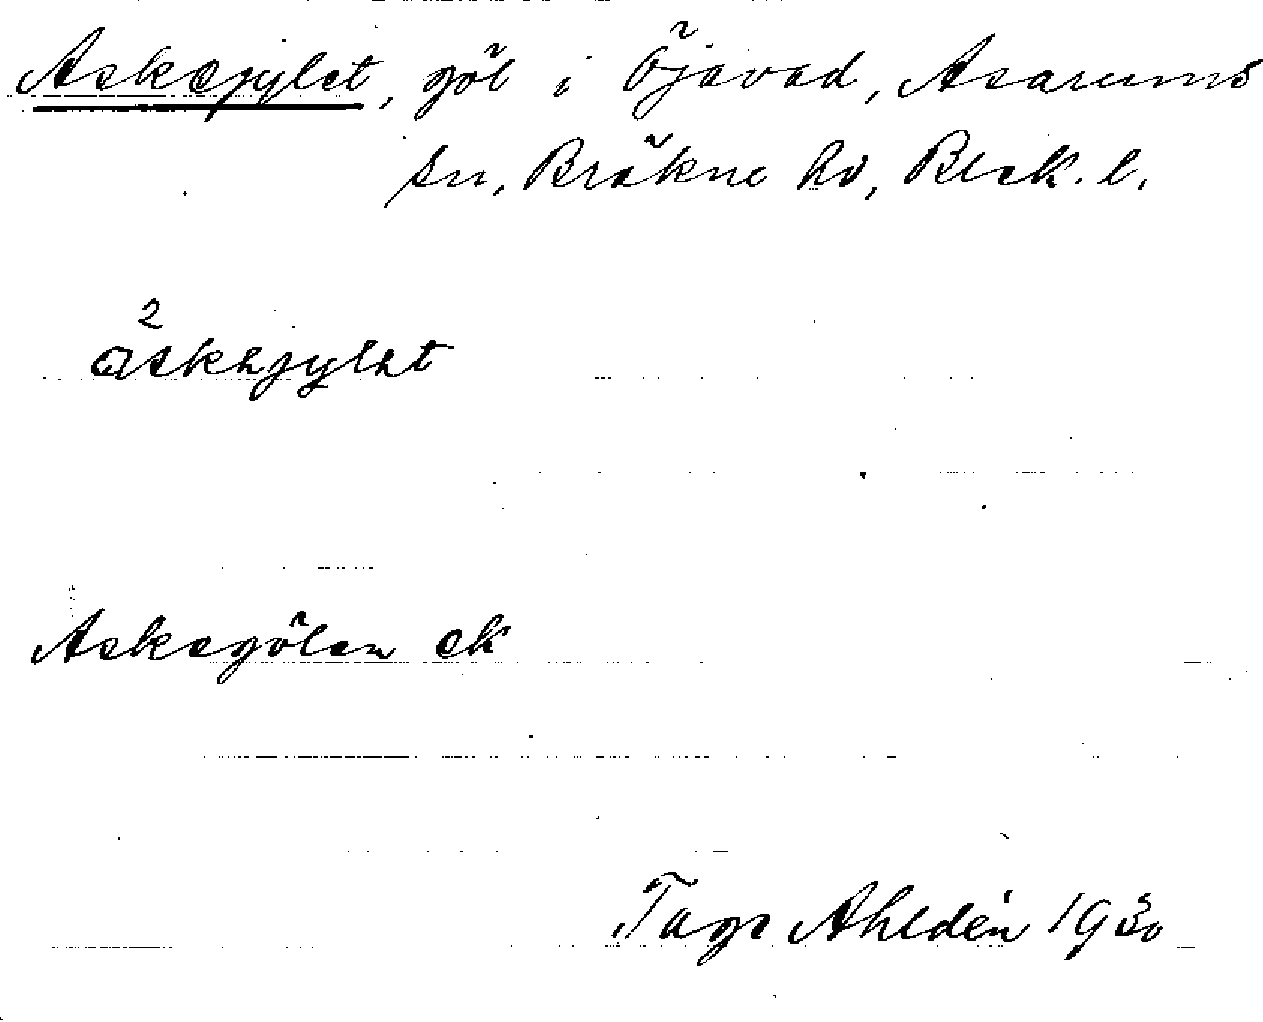 Askegylet, göl i Öjavad, Asarums
sn, Bräkne hd, Blek. l.
2
askegylet
Askegölen ek
Tage Ahldén 1930